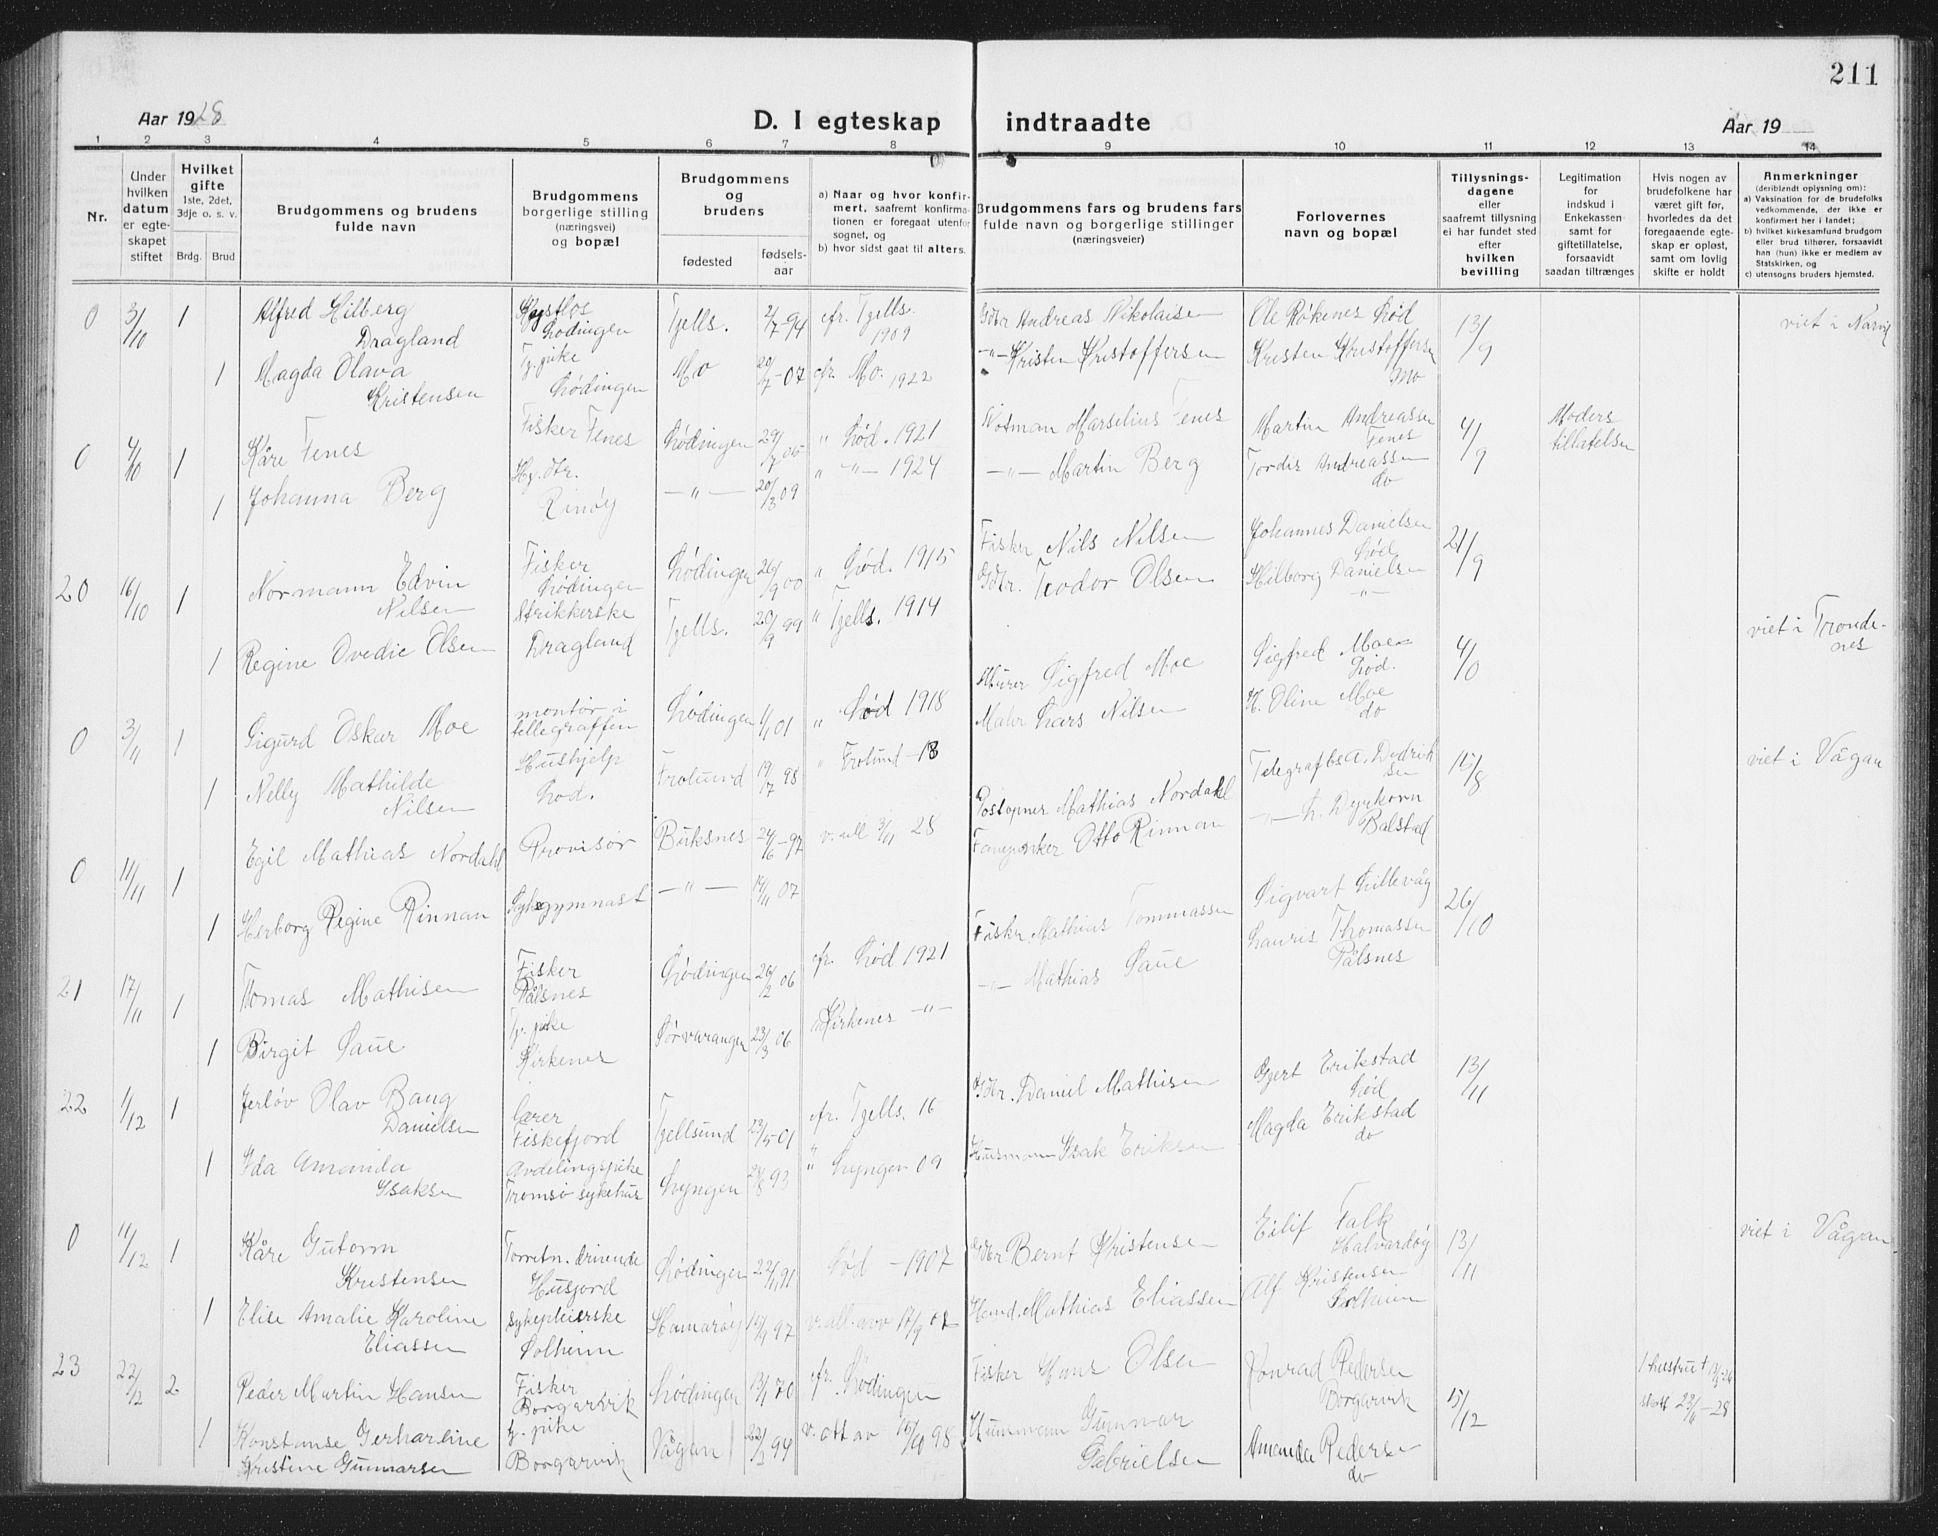 211
Aar 1928
D. I egteskap indtraadte
Aar 19
1 2 3 4 5 6 7 8 9 10 11 12 13 14
Nr.
Under hvilken datum er egteskapet stiftet
Hvilket gifte
1ste, 2det, 3dje o. s. v.
Brdg. Brud
Brudgommens og brudens
fulde navn
Brudgommens
borgerlige stilling
(næringsvei)
og bopæl
Brudgommens
og
brudens
fødested
fødsels-
aar
a) Naar og hvor konfir-
mert, saafremt konfirma-
tionen er foregaat utenfor
sognet, og
b) hvor sidst gaat til alters.
Brudgommens fars og brudens fars
fulde navn og borgerlige stillinger
(næringsveier)
Forlovernes
navn og bopæl
Tillysnings-
dagene
eller
saafremt tillysning
ei har fundet sted
efter
hvilken
bevilling
Legitimation
for
indskud i
Enkekassen
samt for
giftetillatelse,
forsaavidt
saadan tiltrænges
Hvis nogen av
brudefolkene har
været gift før,
hvorledes da det
foregaaende egte-
skap er opløst,
samt om lovlig
skifte er holdt
Anmerkninger
(deriblandt oplysning om):
a) Vaksination for de brudefolks
vedkommende, der ikke er
konfirmert her i landet;
b) hvilket kirkesamfund brudgom
eller brud tilhører, forsaavidt
han (hun) ikke er medlem av
Statskirken, og
c) utensogns bruders hjemsted.
0 3/10 1 Alfred Hilberg Dragland Lødingen Tjells. 2/7-94 cfr. Tjells. 1909 Gdbr Andreas Nikolaisen Ole Røkenes Lød 13/9 viet i Narvik
1 Magda Olava Kristensen Tj. pike Lødingen Mo 20/7-07 cfr. Mo. 1922 -"- Kristen Kristoffersen Kristen Kristoffersen Mo
0 4/10 1 Kåre Fenes Fisker Fenes Lødingen 29/7 05 " Lød. 1921 Notman Marselius Fenes Martin Andreassen Fenes 4/9 Moders tillatelse
1 Johanna Berg Rinøy -"- 20/8 09 " -"- 1924 -"- Martin Berg Tordis Andreassen do
20 16/10 1 Normann Edvin Nilsen Fisker Lødingen Lødingen 26/9 00 " Lød. 1915 Fisker Nils Nilsen Johannes Danielsen Lød 21/9
1 Regine Ovedie Olsen Strikkerske Dragland Tjells. 20/9 99 " Tjells. 1914 Gdbr. Teodor Olsen Hilborg Danielsen -"-
viet i Trondenes
0 3/11 1 Sigurd Oskar Moe montør i tellegraffen Lødingen 1/1 01 " Lød 1918 Murer Sigfred Moe Sigfred Moe Lød. 4/10
1 Nelly Mathilde Nilsen Hushjelp Lød. Frolund 98 " Frolund -18 Lars Nilsen Oline Moe do
viet i Vågan
0 11/11 1 Egil Mathias Nordahl Provisor Buksnes 24/6-97 v. all 3/11 28 Postopner Mathias Nordahl Telegrafbs A. Dedriksen 15/8
1 Herborg Regine Rinnan Sykegymnast -"- 14/11 07 Otto Rinnan -"- L. Dyrkorn Balstad
21 17/11 1 Tomas Mathisen Fisker Pålsnes Lødingen 26/2 06 cfr. Lød 1921 Fisker Mathias Tommassen Sigvart Lillevåg 26/10
1 Birgit Saue Tj. pike Kirkenes Sørvaranger 23/3 06 Kirkenes -"- -"- Mathias Saue Lauris Thomassen Pålsnes
22 1/12 1 Jerløv Olav Bang Danielsen Lærer Fiskefjord Tjellsund 23/5 01 cfr. Tjells. 16 Gdbr. Daniel Mathisen Gjert Erikstad Lød 13/11
1 Ida Amanda Isaksen Avdelingspike Tromsø sykehus Lyngen 24/8 93 " Lyngen 09 Husmann Isak Eriksen Magda Erikstad do
0 11/12 1 Kåre Gutorm Kristensen Forretn. drivende Husjord Lødingen 22/1 91 Lød - 1907 Gdbr Bernt Kristensen Eilif Falk Halvardøy 13/11 viet i Vågan
1 Elise Amalie Karoline Eliassen sykepleierske Solheim Hamarøy 15/9 97 Mathias Eliassen Alf Kristensen Solheim
23 22/12 2 Peder Martin Hansen Fisker Borgarvik Lødingen 13/1 70 cfr. Lødingen Fisker Hans Olsen Konrad Pedersen Borgarvik 15/12
1 Konstanse Gerhardine Kristine Gunnarsen tj. pike Borgarvik Vågan 22/2 94 Husmann Gunnar Gabrielsen Amanda Pedersen do